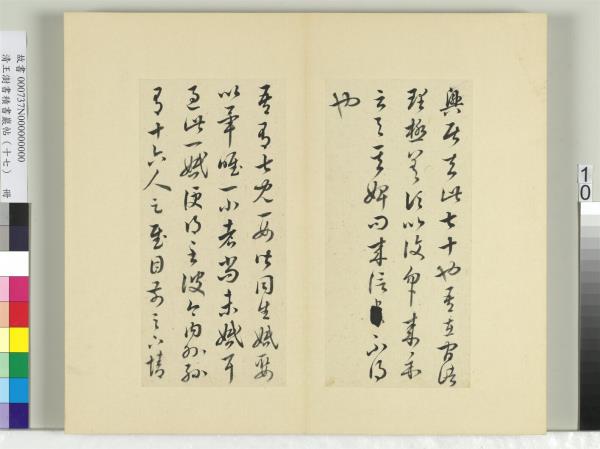 興居去此七十也吾在官諸
理極差頃比復匆匆來示
云與其婢問來信不得
也
吾有七兒一女皆同生婚娶
以畢唯一小者尚未婚耳
過此一婚便得至彼今內外孫
有十六人足慰目前足下情
故書 000737N000000000
清王澍書積書巖帖(十七) 冊
10